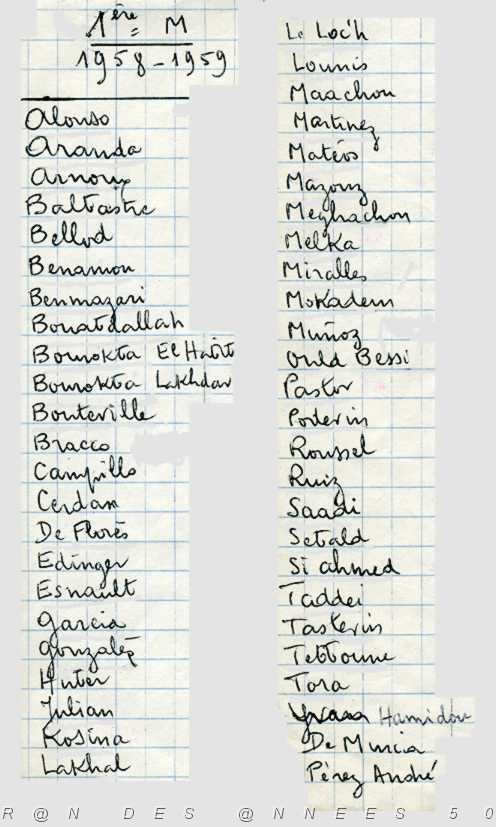 1ère M
1958-1959
Alonso
Aranda
Arnoux
Baltastre
Bellod
Benamon
Benmazari
Bouatdallah
Boumokta El Hatit
Boumokta Lakhdar
Bouteville
Bracco
Campillo
Cerdan
De Florès
Edinger
Esnault
Garcia
Gonzalez
Huter
Julian
Kosina
Lakhal
Le Loc'h
Lounis
Maachou
Martinez
Matéos
Mazouz
Meghachou
Melka
Miralles
Mokadem
Muñoz
Ould Bessi
Pastor
Poderin
Roussel
Ruiz
Saadi
Setald
Si ahmed
Taddei
Tasterin
Tettoume
Tora
Hamidou
De Murcia
Pérez André
R@N DES @NNEES 50